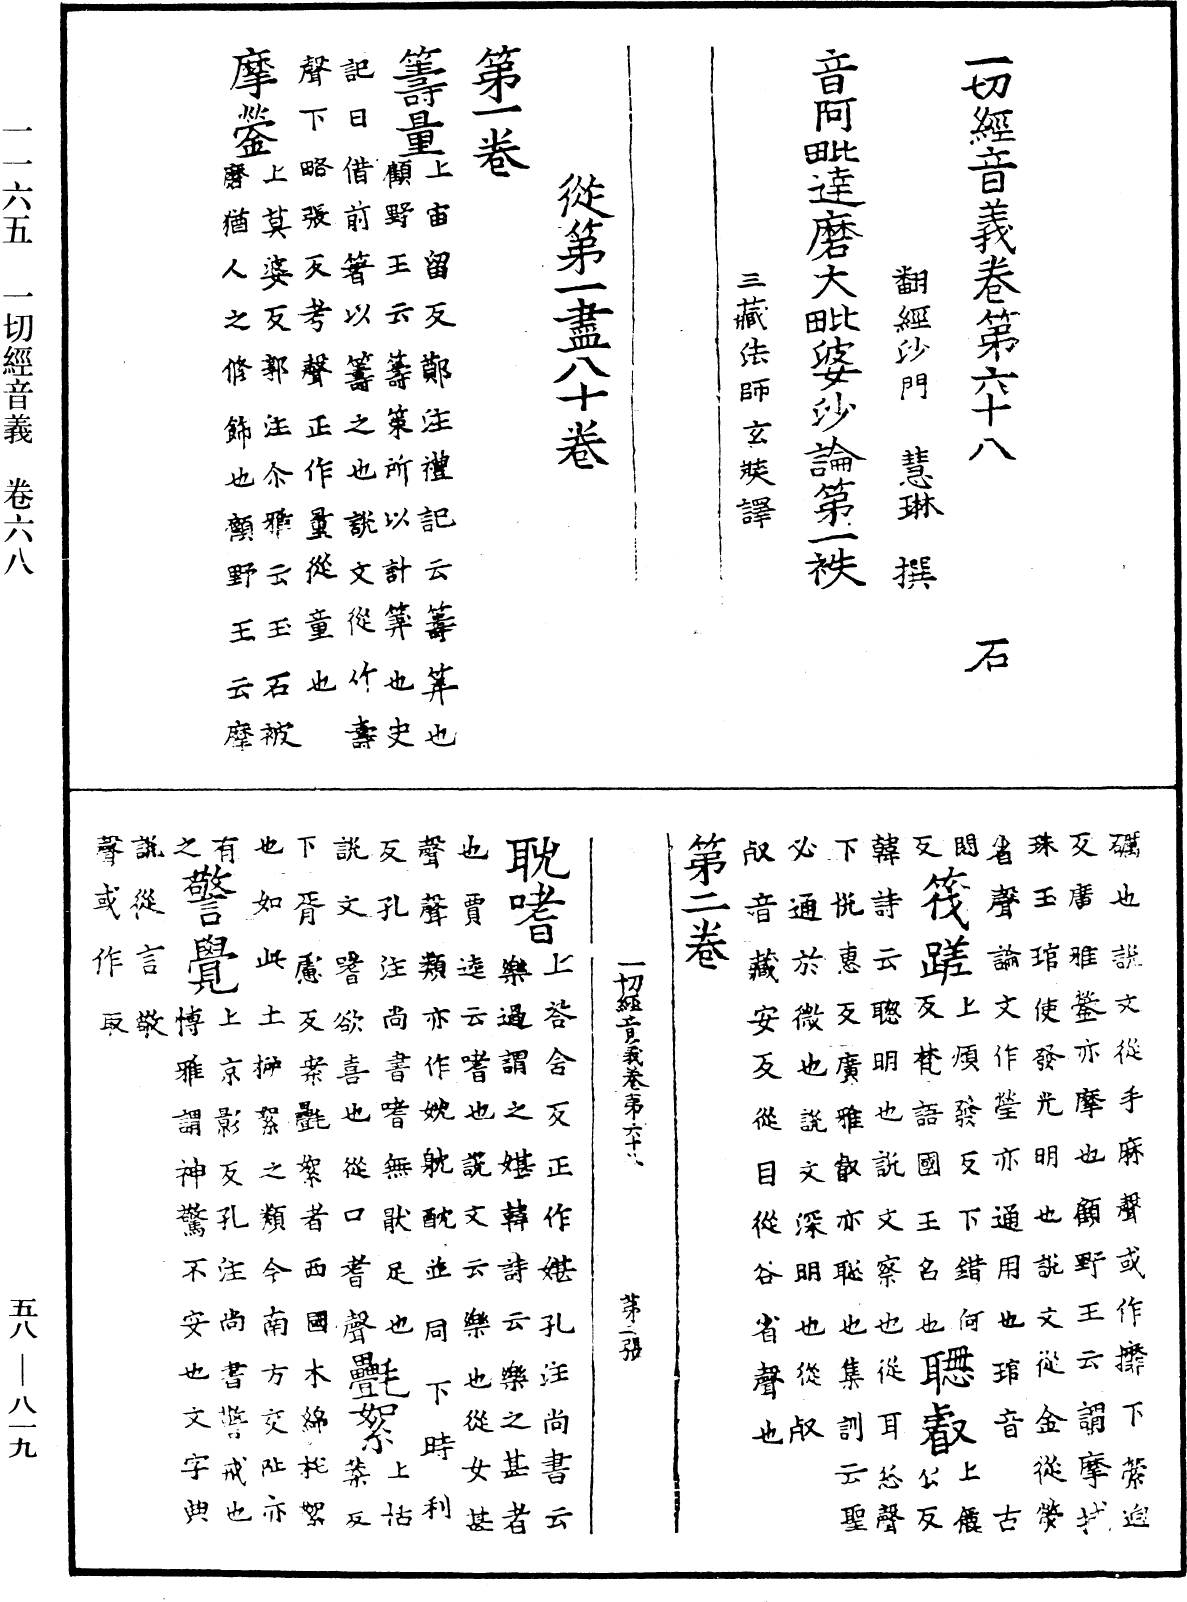 一切經音義卷第六十八　石
翻經沙門　慧琳　撰
音阿毗達磨大毗婆沙論第一袟
三藏法師玄奘譯
從第一盡八十卷
第一卷
籌量上宙留反鄭注禮記云籌筭也
顧野王云籌策所以計筭也史
記曰借前箸以籌之也說文從竹壽
聲下略張反考聲正作量從童也
摩蓥上莫婆反郭注尒雅云玉石被
磨猶人之修飾也顧野王云摩
礪也說文從手麻聲或作攠下縈迥
反廣雅蓥亦摩也顧野王云謂摩拭
珠玉琯使發光明也說文從金從熒
省聲論文作瑩亦通用也琯音古
短反
筏蹉上煩發反下錯何
反梵語國王名也聰叡上倉公反
韓詩云聰明也說文察也從耳怱聲
下恱惠反廣雅叡亦聡也集訓云聖
必通於微也說文深明也從㕡
㕡音藏安反從目從谷省聲也
第二卷
一切經音義卷第六十八　第二張
耽嗜上荅含反正作媅孔注尚書云
樂過謂之媅韓詩云樂之甚者
也賈逵云嗜也說文云樂也從女甚
聲聲類亦作妉躭酖並同下時利
反孔注尚書嗜無猒足也
說文嗜欲喜也從口耆聲㲲絮上恬葉反
下胥慮反案㲲絮者西國木綿㲝絮
也如此土柳絮之類今南方交阯亦
有之
警覺上京影反孔注尚書警戒也
博雅謂神驚不安也文字典
說從言敬
聲或作㪅
一一六五　一切經音義　卷六八
五八—八一九